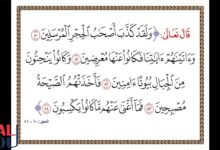 قَالَ تَعَالَى: ﴿ وَلَقَدْ كَذَّبَ أَصْحَٰبُ ٱلْحِجْرِ ٱلْمُرْسَلِينَ ٨٠
وَءَاتَيْنَٰهُمْ ءَايَٰتِنَا فَكَانُوا۟ عَنْهَا مُعْرِضِينَ ٨١ وَكَانُوا۟ يَنْحِتُونَ
مِنَ ٱلْجِبَالِ بُيُوتًا ءَامِنِينَ ٨٢ فَأَخَذَتْهُمُ ٱلصَّيْحَةُ
مُصْبِحِينَ ٨٣ فَمَآ أَغْنَىٰ عَنْهُم مَّا كَانُوا۟ يَكْسِبُونَ ٨٤ ﴾
الحجر: ٨٠ - ٨٤